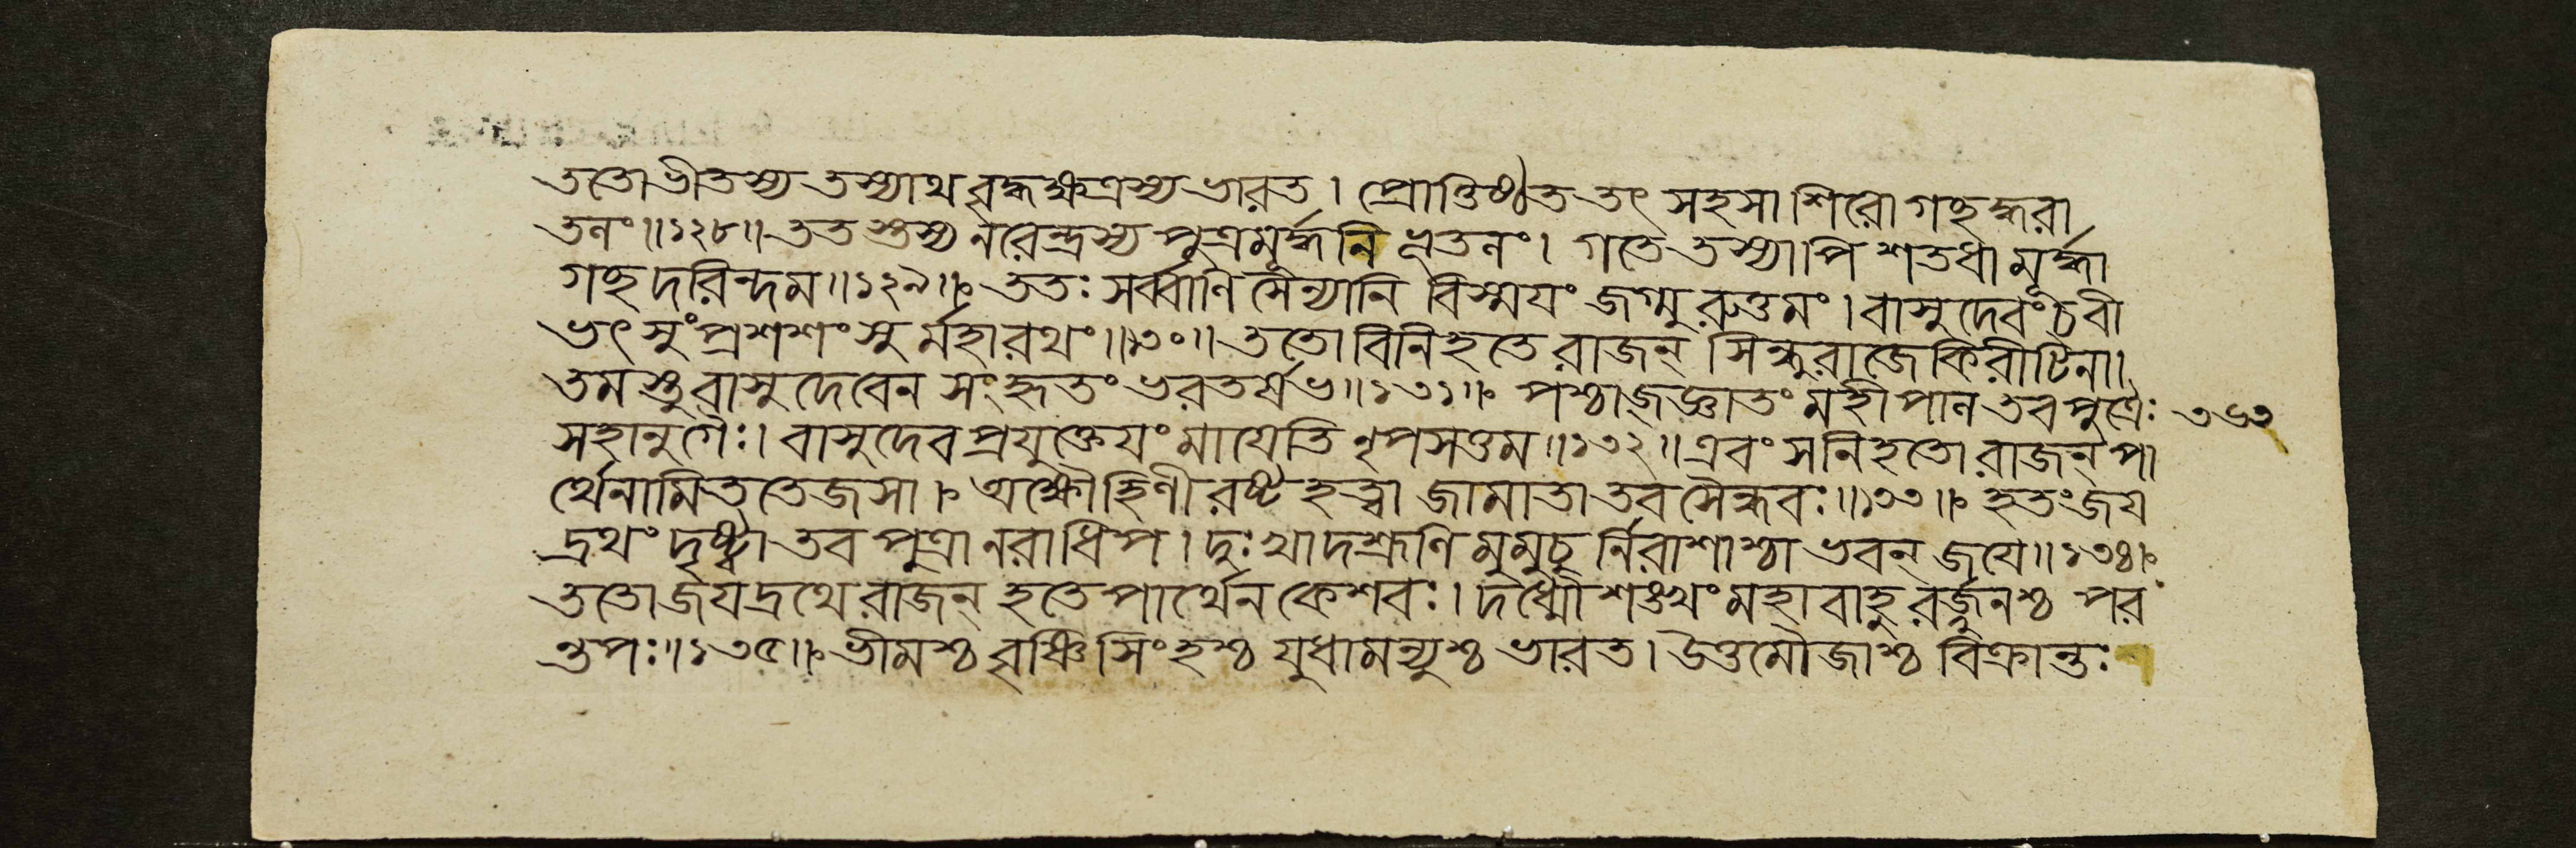 ততোভীতস্য তস্যাথ বৃদ্ধক্ষত্রস্য ভারত। প্রোত্তিষ্ঠতস্তৎ সহসা শিরোগচ্ছদ্ধরা
তলং॥১২৮॥ততস্তস্য নরেন্দ্রস্য পুত্রমূর্দ্ধনি ভূতলং। গতে তস্যাপি শতধা মূর্দ্ধা
গচ্ছদরিন্দম॥১২৯॥ ততঃ সর্ব্বাণি সৈন্যানি বিস্ময়ং জগ্মুরুত্তমং। বাসুদেবং চ বী
ভৎসুং প্রশশংসুর্মহারথং॥১৩০॥ ততো বিনিহতে রাজন্ সিন্ধুরাজে কিরীটিনা।
তমস্তু বাসুদেবেন সংহৃতং ভরতর্ষভ॥১৩১॥ পশ্চাজ্জ্ঞাতং মহীপাল তব পুত্রৈঃ
৩৬৩
সহানুগৈঃ। বাসুদেব প্রযুক্তেয়ং মায়েতি নৃপসত্তম॥১৩২॥ এবং স নিহতো রাজন্ পা
র্থেনামিত তেজসা। অক্ষৌহিণীরষ্ট হত্বা জামাতা তব সৈন্ধবঃ॥১৩৩॥ হতং জয়
দ্রথং দৃষ্ট্বা তব পুত্রা নরাধিপ। দুঃখাদশ্রূণি মুমুচুর্নিরাশাশ্চা ভবন্ জয়ে॥১৩৪॥
ততো জয়দ্রথে রাজন্ হতে পার্থেন কেশবঃ। দধ্মৌ শঙ্খং মহাবাহুরর্জুনশ্চ পরং
তপঃ॥১৩৫॥ ভীমশ্চ বৃষ্ণিসিংহশ্চ যুধামন্যুশ্চ ভারত। উত্তমৌজাশ্চ বিক্রান্তঃ